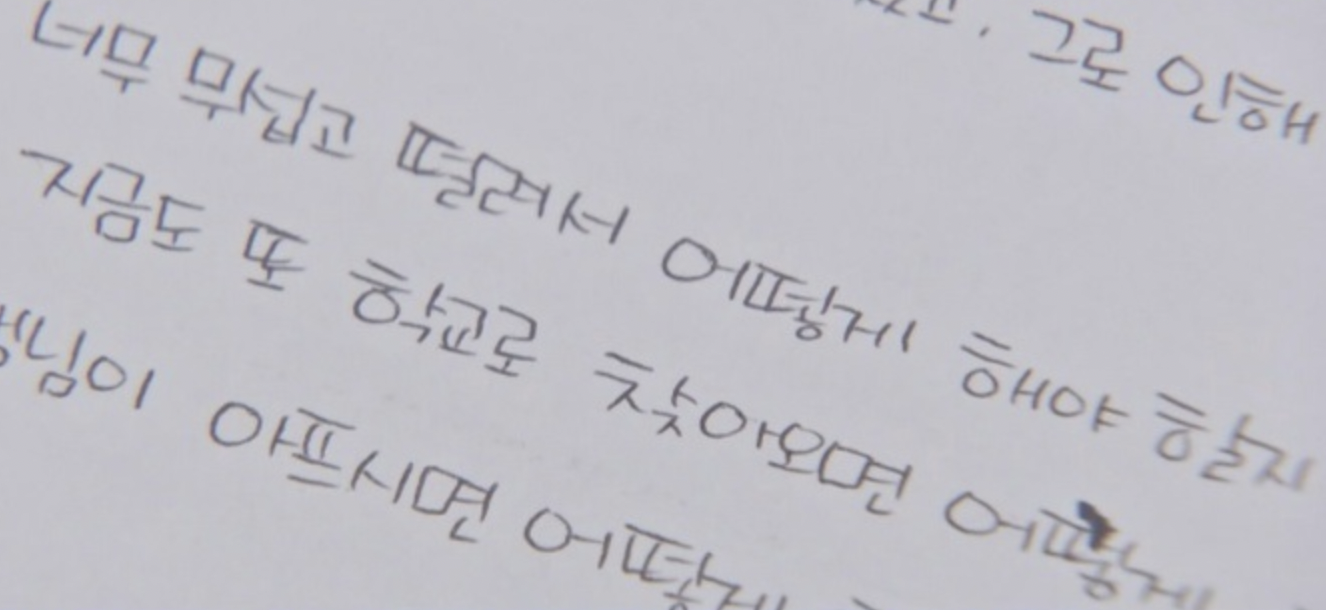 그로 인해
너무 무섭고 떨려서 어떻게 해야 할지
지금도 또 학교로 찾아오면 어떻게
님이 아프시면 어떻게